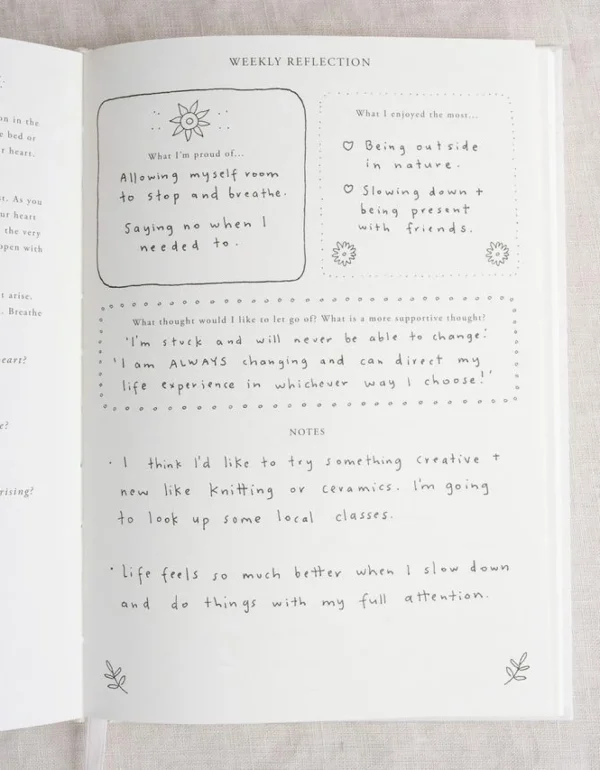 on in the
bed or
heart.
st. As you
ur heart
the very
open with
t arise.
. Breathe
eart?
e?
rising?
WEEKLY REFLECTION
What I'm proud of...
Allowing myself room
to stop and breathe.
Saying no when I
needed to.
What I enjoyed the most...
Being outside
in nature.
Slowing down +
being present
with friends.
What thought would I like to let go of? What is a more supportive thought?
'I'm stuck and will never be able to change.'
'I am ALWAYS changing and can direct my
life experience in whichever way I choose!'
NOTES
· I think I'd like to try something creative +
new like knitting or ceramics. I'm going
to look up some local classes.
· Life feels so much better when I slow down
and do things with my full attention.